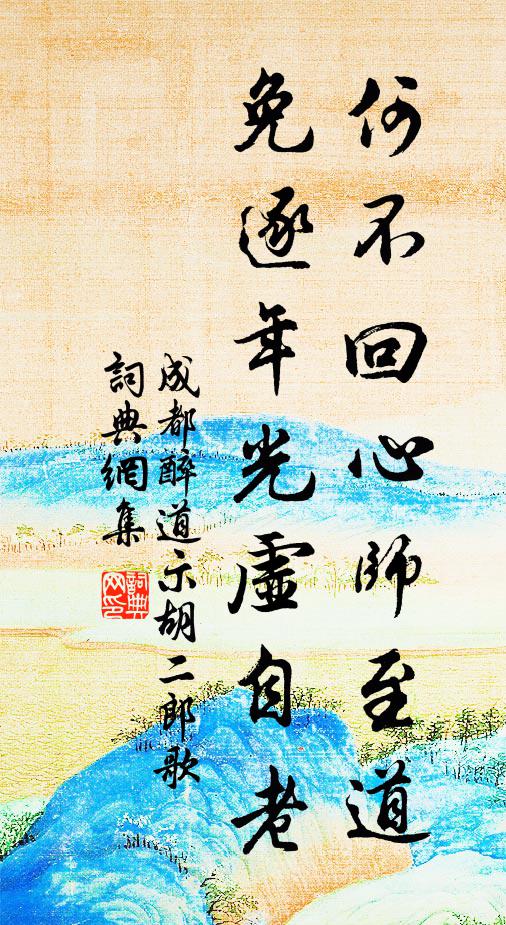 何不回心師至道
免逐年光虛自老
成都醉道示胡二郎歌
詞典網集
詞典
网印